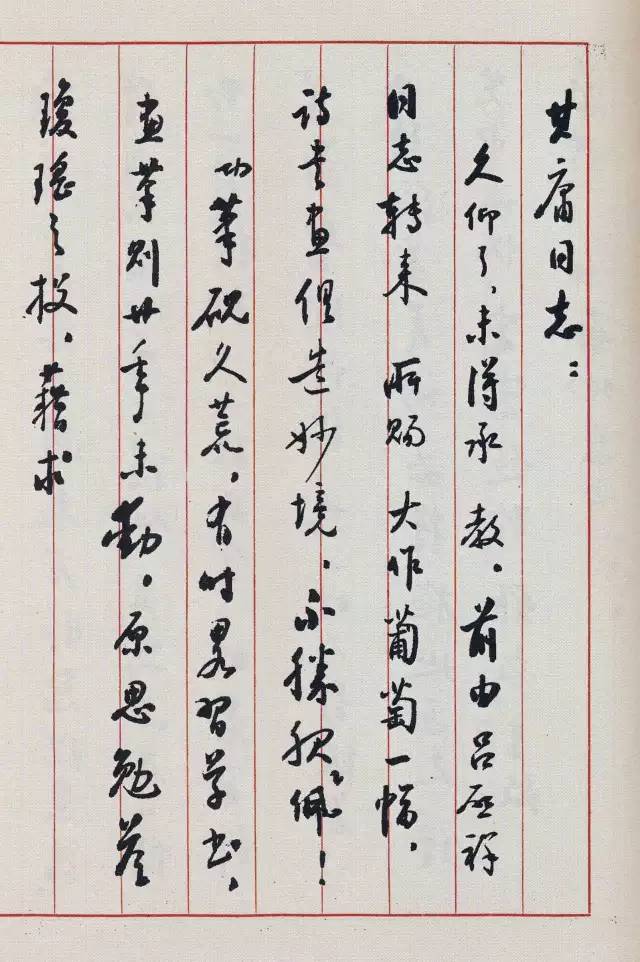 其庸同志：
久仰了，未得承 教。前由吕启祥
同志转来 所赐 大作葡萄一幅，
诗书画俱造妙境，不胜钦佩！
功笔砚久荒，有时略习草书，
画笔则廿年未动。原思勉答
琼瑶之投，藉求